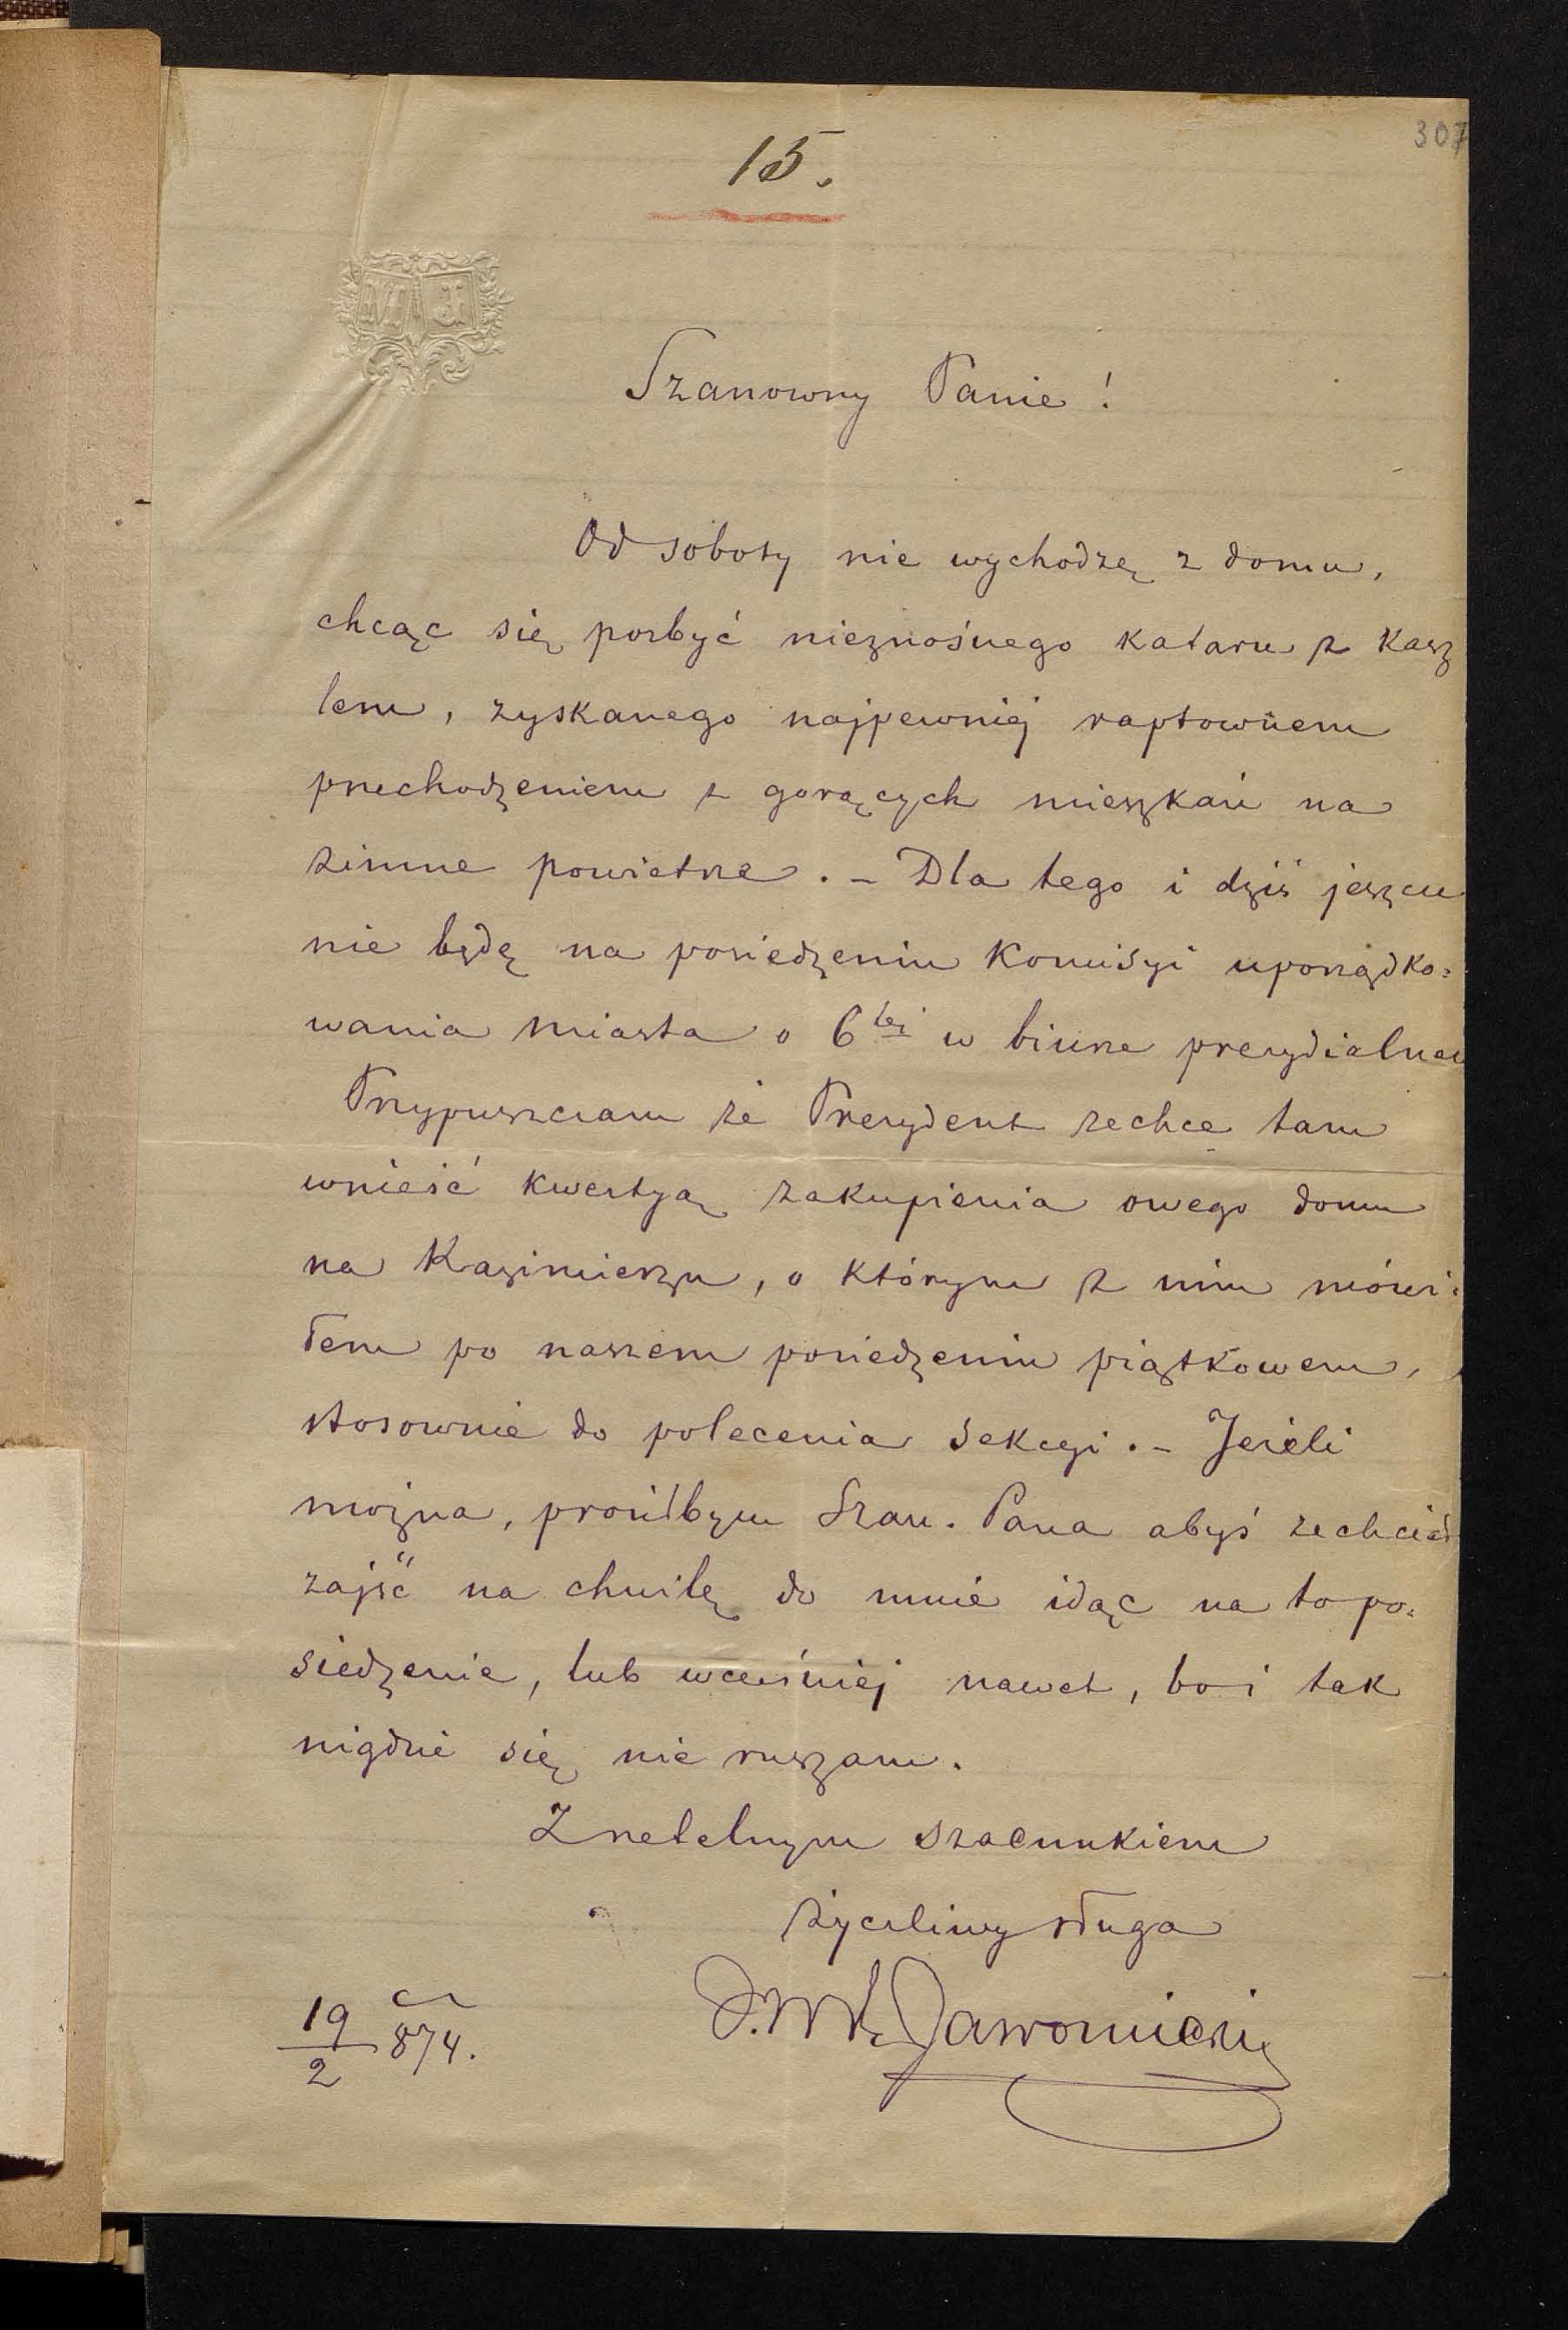 307
15.
M J
Szanowny Panie!
Od soboty nie wychodzę z domu,
chcąc się pozbyć nieznośnego kataru z kasz
lem, zyskanego najpewniej raptownem
przechodzeniem z gorących mieszkań na
zimne powietrze. – Dla tego i dziś jeszcze
nie będę na posiedzeniu Komisyi uporządko=
wania miasta o 6tej w biurze prezydialnem
Przypuszczam że Prezydent zechce tam
wnieść kwestyą zakupienia owego domu
na Kazimierzu, o którym z nim mówi=
łem po naszem posiedzeniu piątkowem,
stosownie do polecenia Sekcyi. – Jeżeli
można, prosiłbym Szan. Pana abyś zechciał
zajść na chwilę do mnie idąc na to po=
siedzenie, lub wcześniej nawet, bo i tak
nigdzie się nie ruszam.
Z rzetelnym szacunkiem
życzliwy sługa
19/2 874.
Jawornicki